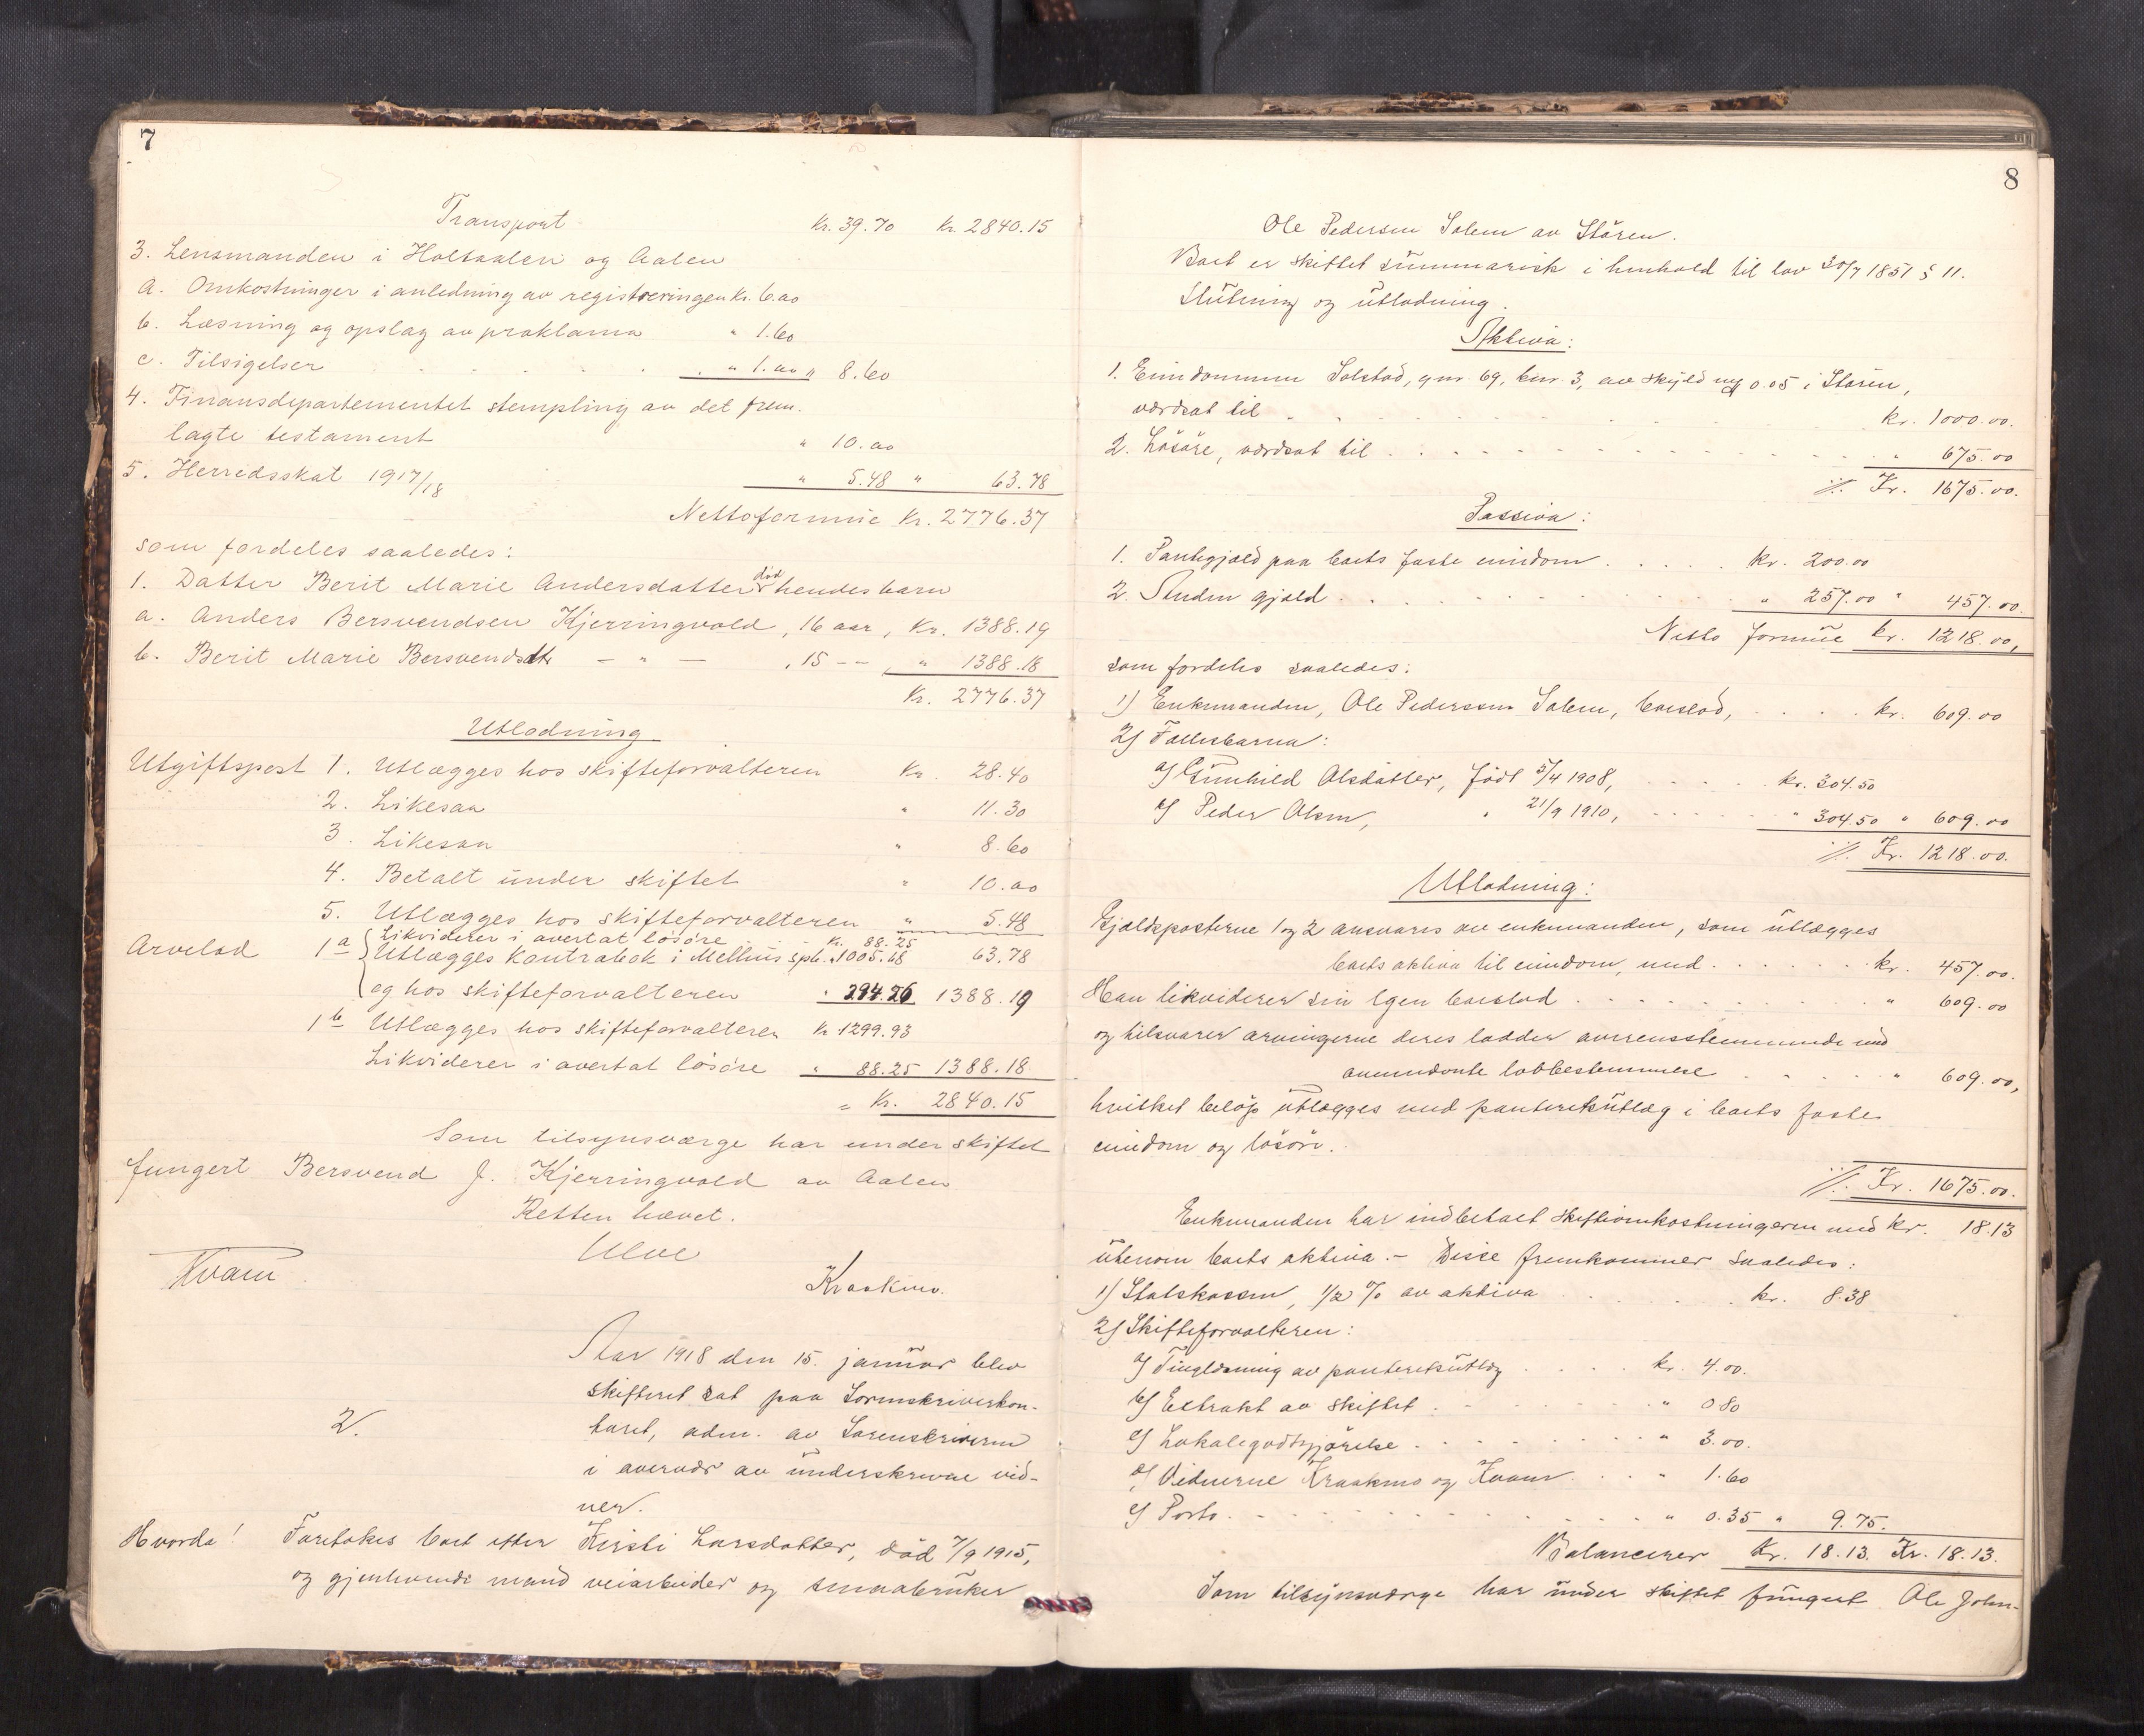 7
Transport Kr. 39.70 Kr. 2840.15
3. Lensmanden i Holtaalen og Aalen
a. Omkostninger i anledning av registreringen Kr. 6.00
b. Læsning og opslag av proklama " 1.60
c. Tilsigelser " 1.00 " 8.60
4. Finansdepartementet stempling av det frem-
lagte testament " 10.00
5. Herredsskat 1917/18 " 5.48 " 63.78
Nettoformue Kr. 2776.37
som fordeles saaledes:
1. Datter Berit Marie Andersdatter død hendes barn
a. Anders Bersvendsen Kjerringvold, 16 aar, Kr. 1388.19
b. Berit Marie Bersvendsdtr — " — , 15 -- , " 1388.18
Kr. 2776.37
Utlodning
Utgiftspost 1. Utlægges hos skifteforvalteren Kr. 28.40
2. Likesaa " 11.30
3. Likesaa " 8.60
4. Betalt under skiftet " 10.00
5. Utlægges hos skifteforvalteren " 5.48
Likviderer i overtat løsøre Kr. 88.25
Arvelod 1a Utlægges Kontrabok i Melhus spb. " 1005.68 63.78
og hos skifteforvalteren " 294.26 1388.19
1b Utlægges hos skifteforvalteren Kr. 1299.93
Likviderer i overtat løsøre " 88.25 1388.18
= Kr. 2840.15
Som tilsynsværge har under skiftet
fungert Bersvend J. Kjerringvold av Aalen
Retten hævet.
Ulve
Kvam Kraakmo.
Aar 1918 den 15. januar blev
skifteret sat paa Sorenskriverkon-
2. toret, adm. av Sorenskriveren
i overvær av underskrevne vid-
ner.
Hvorda! Foretokes boet efter Kirsti Larsdatter, død 7/9 1915,
og gjenlevende mand veiarbeider og smaabruker
8
Ole Pedersen Solem av Støren.
Boet er skiftet summarisk i henhold til lov 30/7 1851 § 11.
Slutning og utlodning.
Aktiva:
1. Eiendommen Solstad, gnr. 69, bnr. 3, av skyld 0.05 i Støren,
værdsat til kr. 1000.00.
2. Løsøre, værdsat til " 675.00
Kr. 1675.00.
Passiva:
1. Pantegjæld paa boets faste eiendom kr. 200.00
2. Anden gjæld " 257.00 " 457.00.
Netto formue kr. 1218.00,
som fordeles saaledes:
1) Enkemanden, Ole Pedersen Solem, boeslod, kr. 609.00
2) Fællesbarna:
a) Gunhild Olsdatter, født 5/4 1908, kr. 304.50
b) Peder Olsen, " 21/9 1910, " 304.50 " 609.00
Kr. 1218.00.
Utlodning:
Gjældsposterne 1 og 2 ansvares av enkemanden, som utlægges
boets aktiva til eiendom, med kr. 457.00.
Han likviderer sin egen boeslod " 609.00
og tilsvarer arvingerne deres lodder overensstemmende med
ovennævnte lovbestemmelse " 609.00,
hvilket beløp utlægges med panteretsutlæg i boets faste
eiendom og løsøre.
Kr. 1675.00.
Enkemanden har indbetalt skifteomkostningerne med kr. 18.13
utenom boets aktiva. - Disse fremkommer saaledes:
1) Statskassen, 1/2 % av aktiva kr. 8.38
2) Skifteforvalteren:
a) Tinglæsning av panteretsutlæg kr. 4.00.
b) Extrakt av skiftet " 0.80
c) Lokalegodtgjørelse " 3.00.
d) Vidnerne Kraakmo og Kvam " 1.60
e) Porto " 0.35 " 9.75.
Balancerer Kr. 18.13. Kr. 18.13.
Som tilsynsværge har under skiftet fungert Ole John-